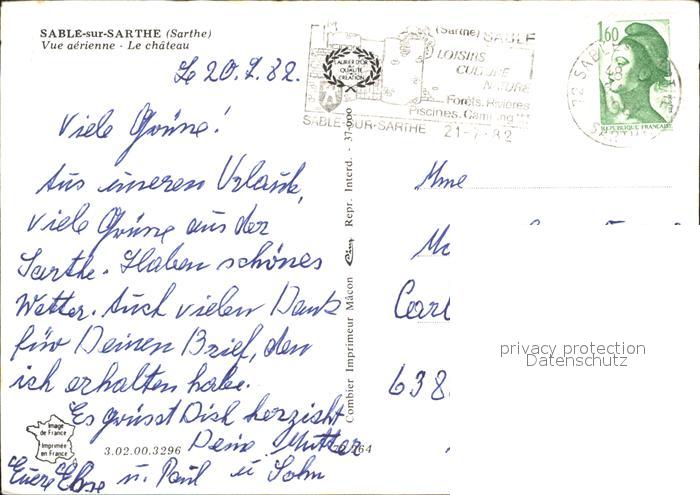 SABLE-sur-SARTHE (Sarthe)
Vue aérienne - Le château
Le 20.7.82.
Viele Grüsse!
Aus unseren Urlaub,
viele Grüsse aus der
Sarthe. Haben schönes
Wetter. Auch vielen Dank
für Deinen Brief, den
ich erhalten habe.
Es grüsst Dich herzlichst
Deine Mutter
Euere Else u. Paul u Sohn
Image
de France
Imprimée
en France
3.02.00.3296
Combier Imprimeur Mâcon Cim Repr. Interd. - 371000
LAURIER D'OR
DE LA
QUALITÉ
CRÉATION
(Sarthe) SABLE
LOISIRS
CULTURE
NATURE
Forêts. Rivières
Piscines. Camping
SABLE-SUR-SARTHE 21-7-82
72 SABLE
SARTHE
1,60
REPUBLIQUE FRANÇAISE
Mme
638
privacy protection
Datenschutz